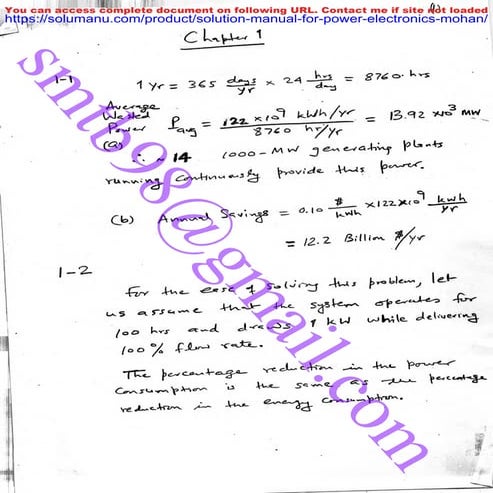 You can access complete document on following URL. Contact me if site not loaded
https://solumanu.com/product/solution-manual-for-power-electronics-mohan/
Chapter 1
1-1 1 yr = 365 days/yr × 24 hrs/day = 8760 hrs
Average
Wasted
Power Pavg = 122 × 10⁹ kWh/yr / 8760 hr/yr = 13.92 × 10³ MW
(a)
∴ ~ 14 1000-MW generating plants
running continuously provide this power.
(b) Annual Savings = 0.10 $/kWh × 122 × 10⁹ kWh/yr
= 12.2 Billion $/yr
1-2
For the ease of solving this problem, let
us assume that the system operates for
100 hrs and draws 1 kW while delivering
100% flow rate.
The percentage reduction in the power
consumption is the same as the percentage
reduction in the energy consumption.
smtb98@gmail.com